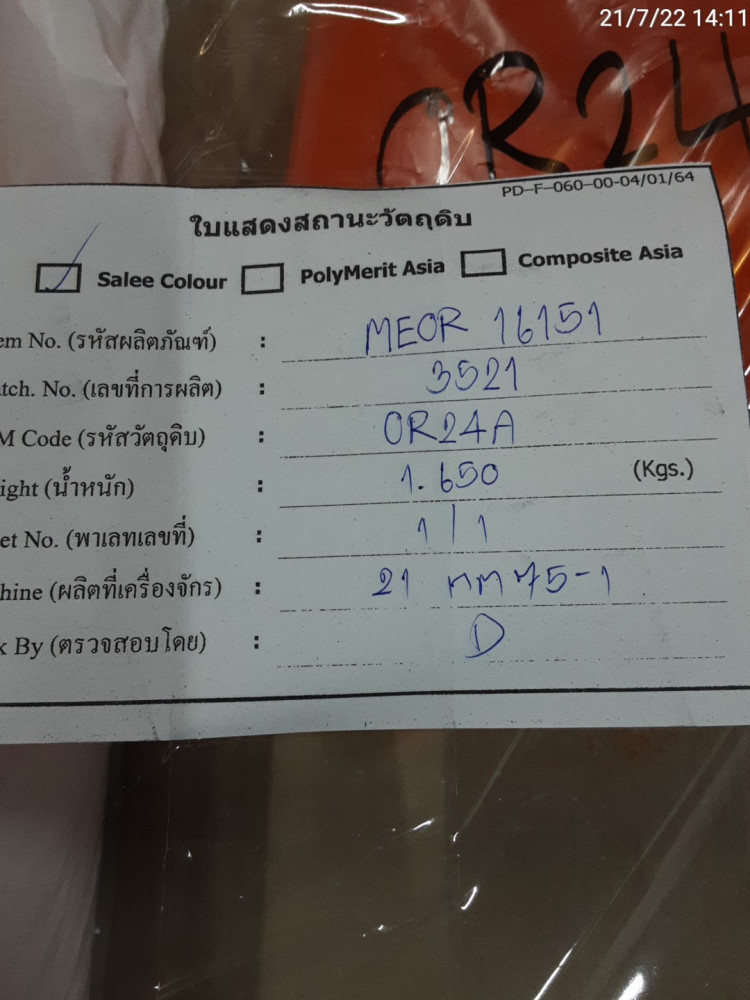 21/7/22 14:11
OR24
PD-F-060-00-04/01/64
ใบแสดงสถานะวัตถุดิบ
Salee Colour PolyMerit Asia Composite Asia
em No. (รหัสผลิตภัณฑ์) : MEOR 16151
tch. No. (เลขที่การผลิต) : 3521
M Code (รหัสวัตถุดิบ) : OR24A
ight (น้ำหนัก) : 1.650 (Kgs.)
et No. (พาเลทเลขที่) : 1/1
hine (ผลิตที่เครื่องจักร) : 21 75-1
k By (ตรวจสอบโดย) : D